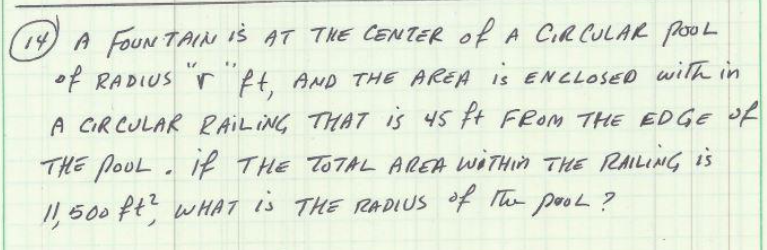 14 A FOUNTAIN is AT THE CENTER of A CIRCULAR POOL
of RADIUS "r" ft, AND THE AREA is ENCLOSED with in
A CIRCULAR RAILING THAT is 45 ft FROM THE EDGE of
THE POOL. if THE TOTAL AREA WITHIN THE RAILING is
11,500 ft², WHAT is THE RADIUS of The pool?